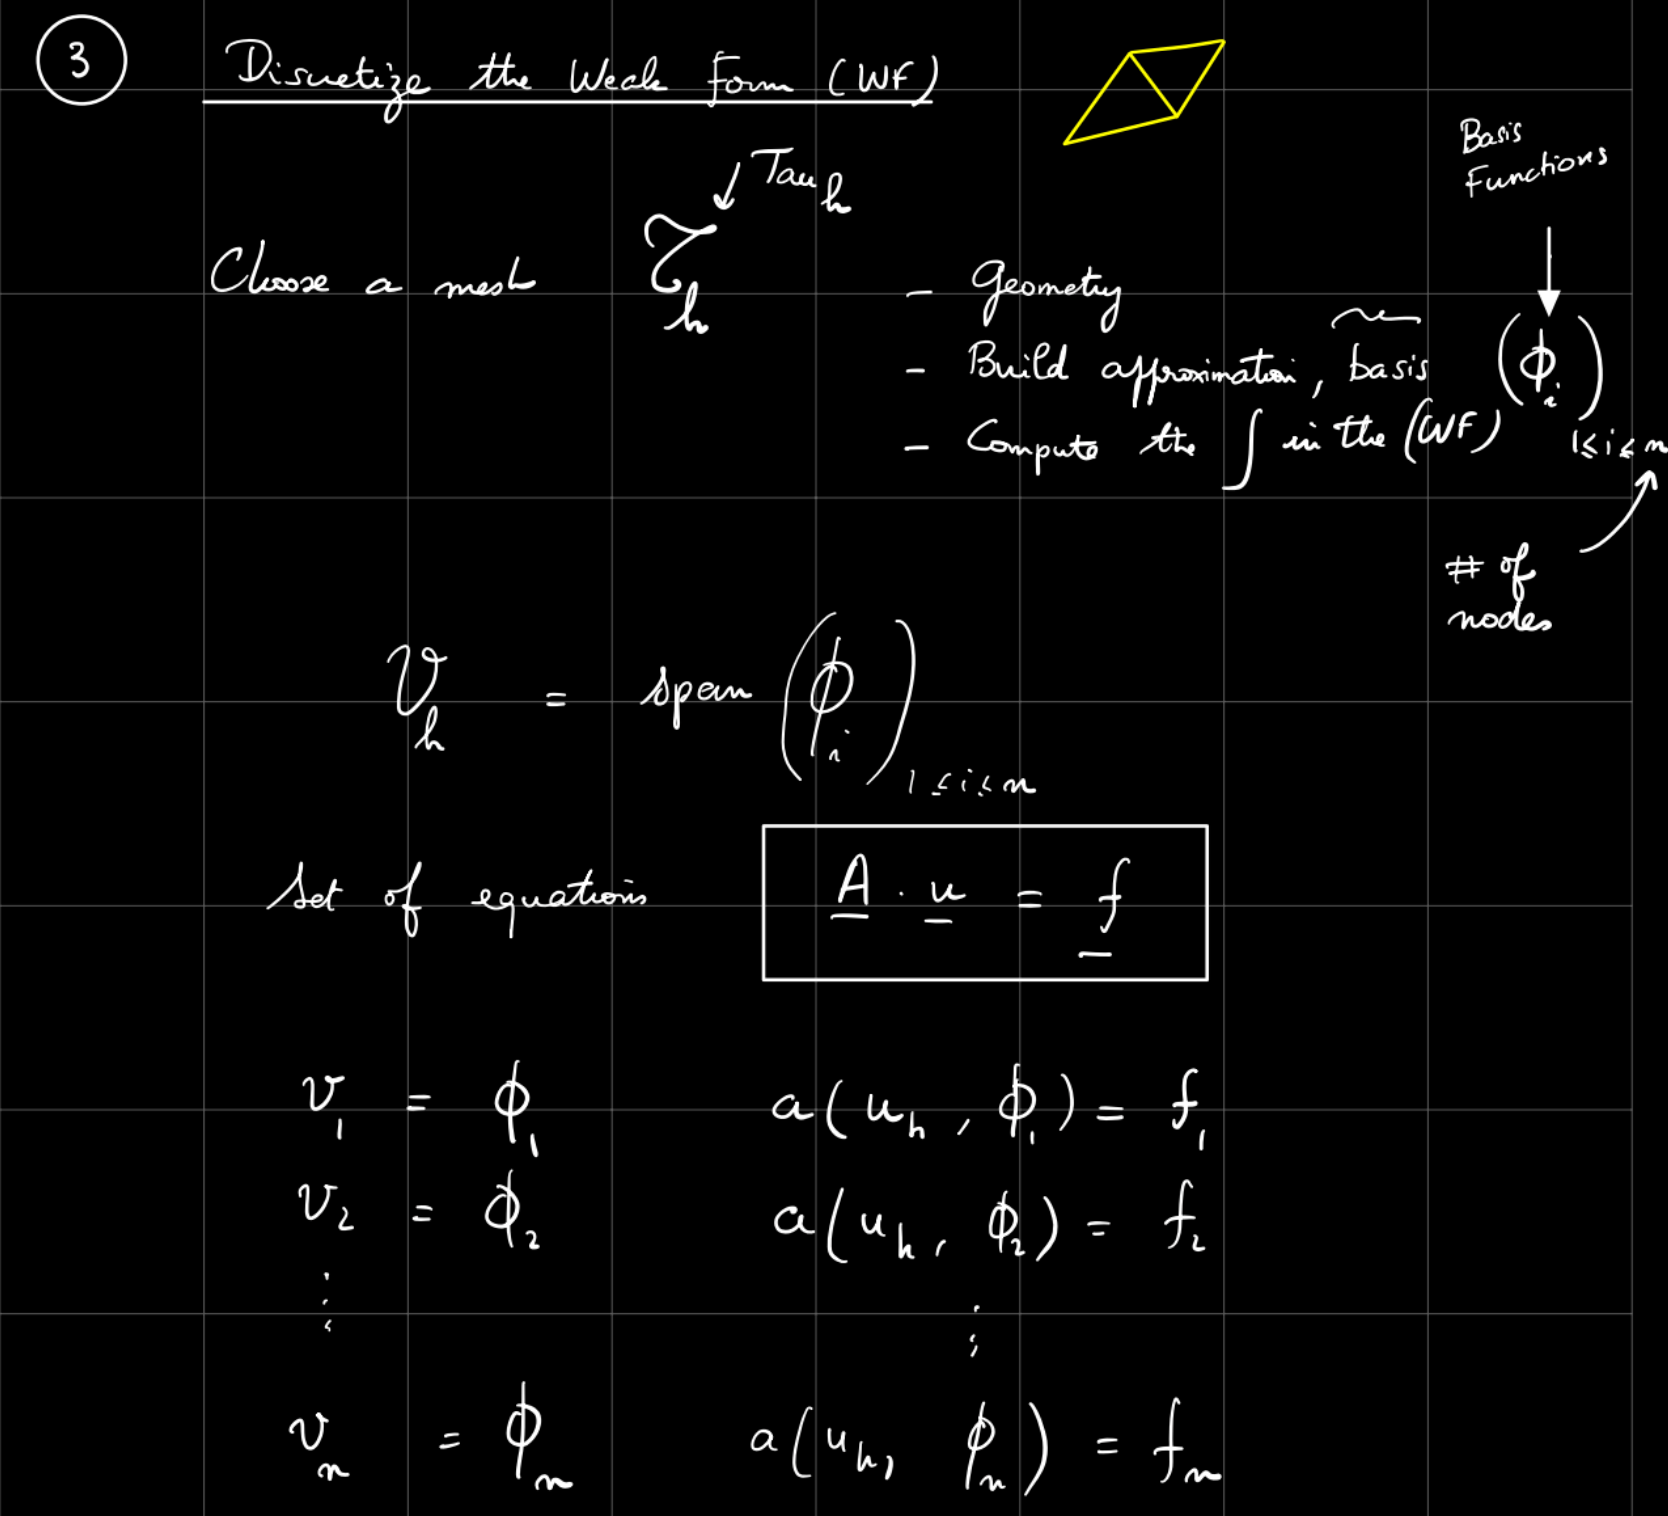 3 Discretize the Weak Form (WF)
↓ Tau_h
Basis Functions
Choose a mesh 𝒯_h
- Geometry
- Build approximation, basis (ϕ_i)_{1≤i≤n}
- Compute the ∫ in the (WF)
# of nodes
V_h = span (ϕ_i)_{1≤i≤n}
Set of equations A · u = f
v_1 = ϕ_1 a(u_h, ϕ_1) = f_1
v_2 = ϕ_2 a(u_h, ϕ_2) = f_2
⋮ ⋮
v_n = ϕ_n a(u_h, ϕ_n) = f_n